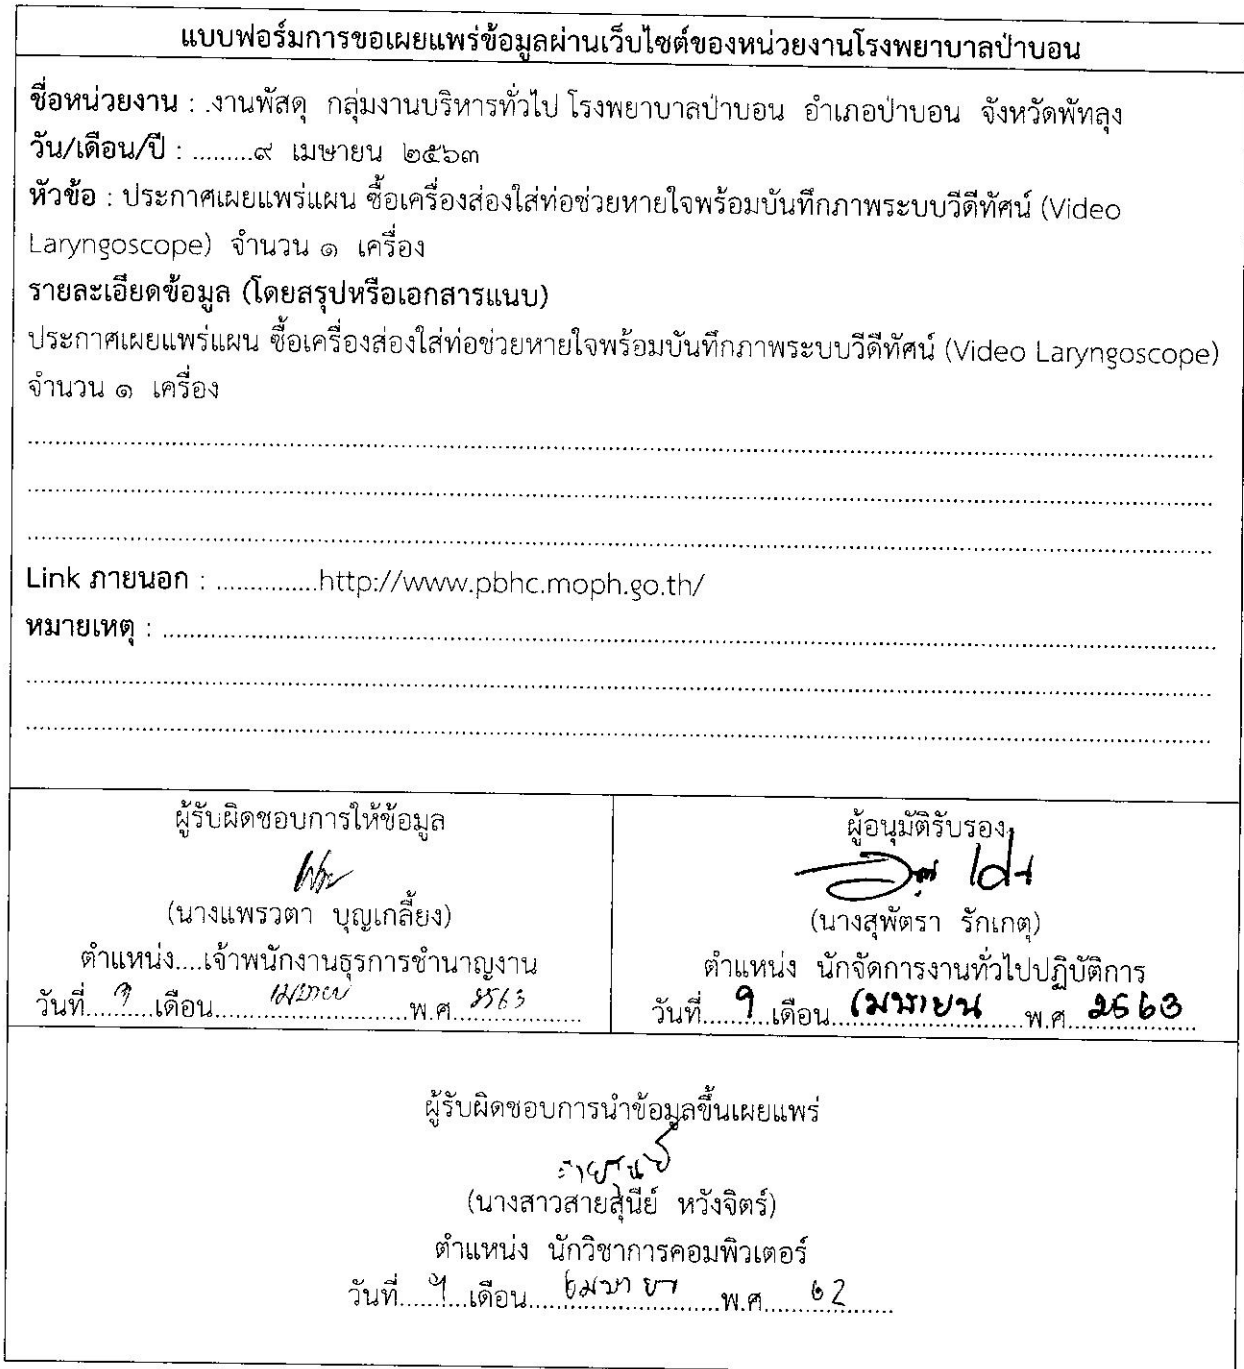 แบบฟอร์มการขอเผยแพร่ข้อมูลผ่านเว็บไซต์ของหน่วยงานโรงพยาบาลป่าบอน
ชื่อหน่วยงาน : .งานพัสดุ กลุ่มงานบริหารทั่วไป โรงพยาบาลป่าบอน อำเภอป่าบอน จังหวัดพัทลุง
วัน/เดือน/ปี : .........๙ เมษายน ๒๕๖๓
หัวข้อ : ประกาศเผยแพร่แผน ซื้อเครื่องส่องใส่ท่อช่วยหายใจพร้อมบันทึกภาพระบบวีดีทัศน์ (Video
Laryngoscope) จำนวน ๑ เครื่อง
รายละเอียดข้อมูล (โดยสรุปหรือเอกสารแนบ)
ประกาศเผยแพร่แผน ซื้อเครื่องส่องใส่ท่อช่วยหายใจพร้อมบันทึกภาพระบบวีดีทัศน์ (Video Laryngoscope)
จำนวน ๑ เครื่อง
Link ภายนอก : ...............http://www.pbhc.moph.go.th/
หมายเหตุ :
ผู้รับผิดชอบการให้ข้อมูล
(นางแพรวตา บุญเกลี้ยง)
ตำแหน่ง....เจ้าพนักงานธุรการชำนาญงาน
วันที่ 9 เดือน เมษายน พ.ศ. 2563
ผู้อนุมัติรับรอง
(นางสุพัตรา รักเกตุ)
ตำแหน่ง นักจัดการงานทั่วไปปฏิบัติการ
วันที่ 9 เดือน เมษายน พ.ศ. 2563
ผู้รับผิดชอบการนำข้อมูลขึ้นเผยแพร่
สายสุนีย์
(นางสาวสายสุนีย์ หวังจิตร์)
ตำแหน่ง นักวิชาการคอมพิวเตอร์
วันที่ 9 เดือน เมษายน พ.ศ.